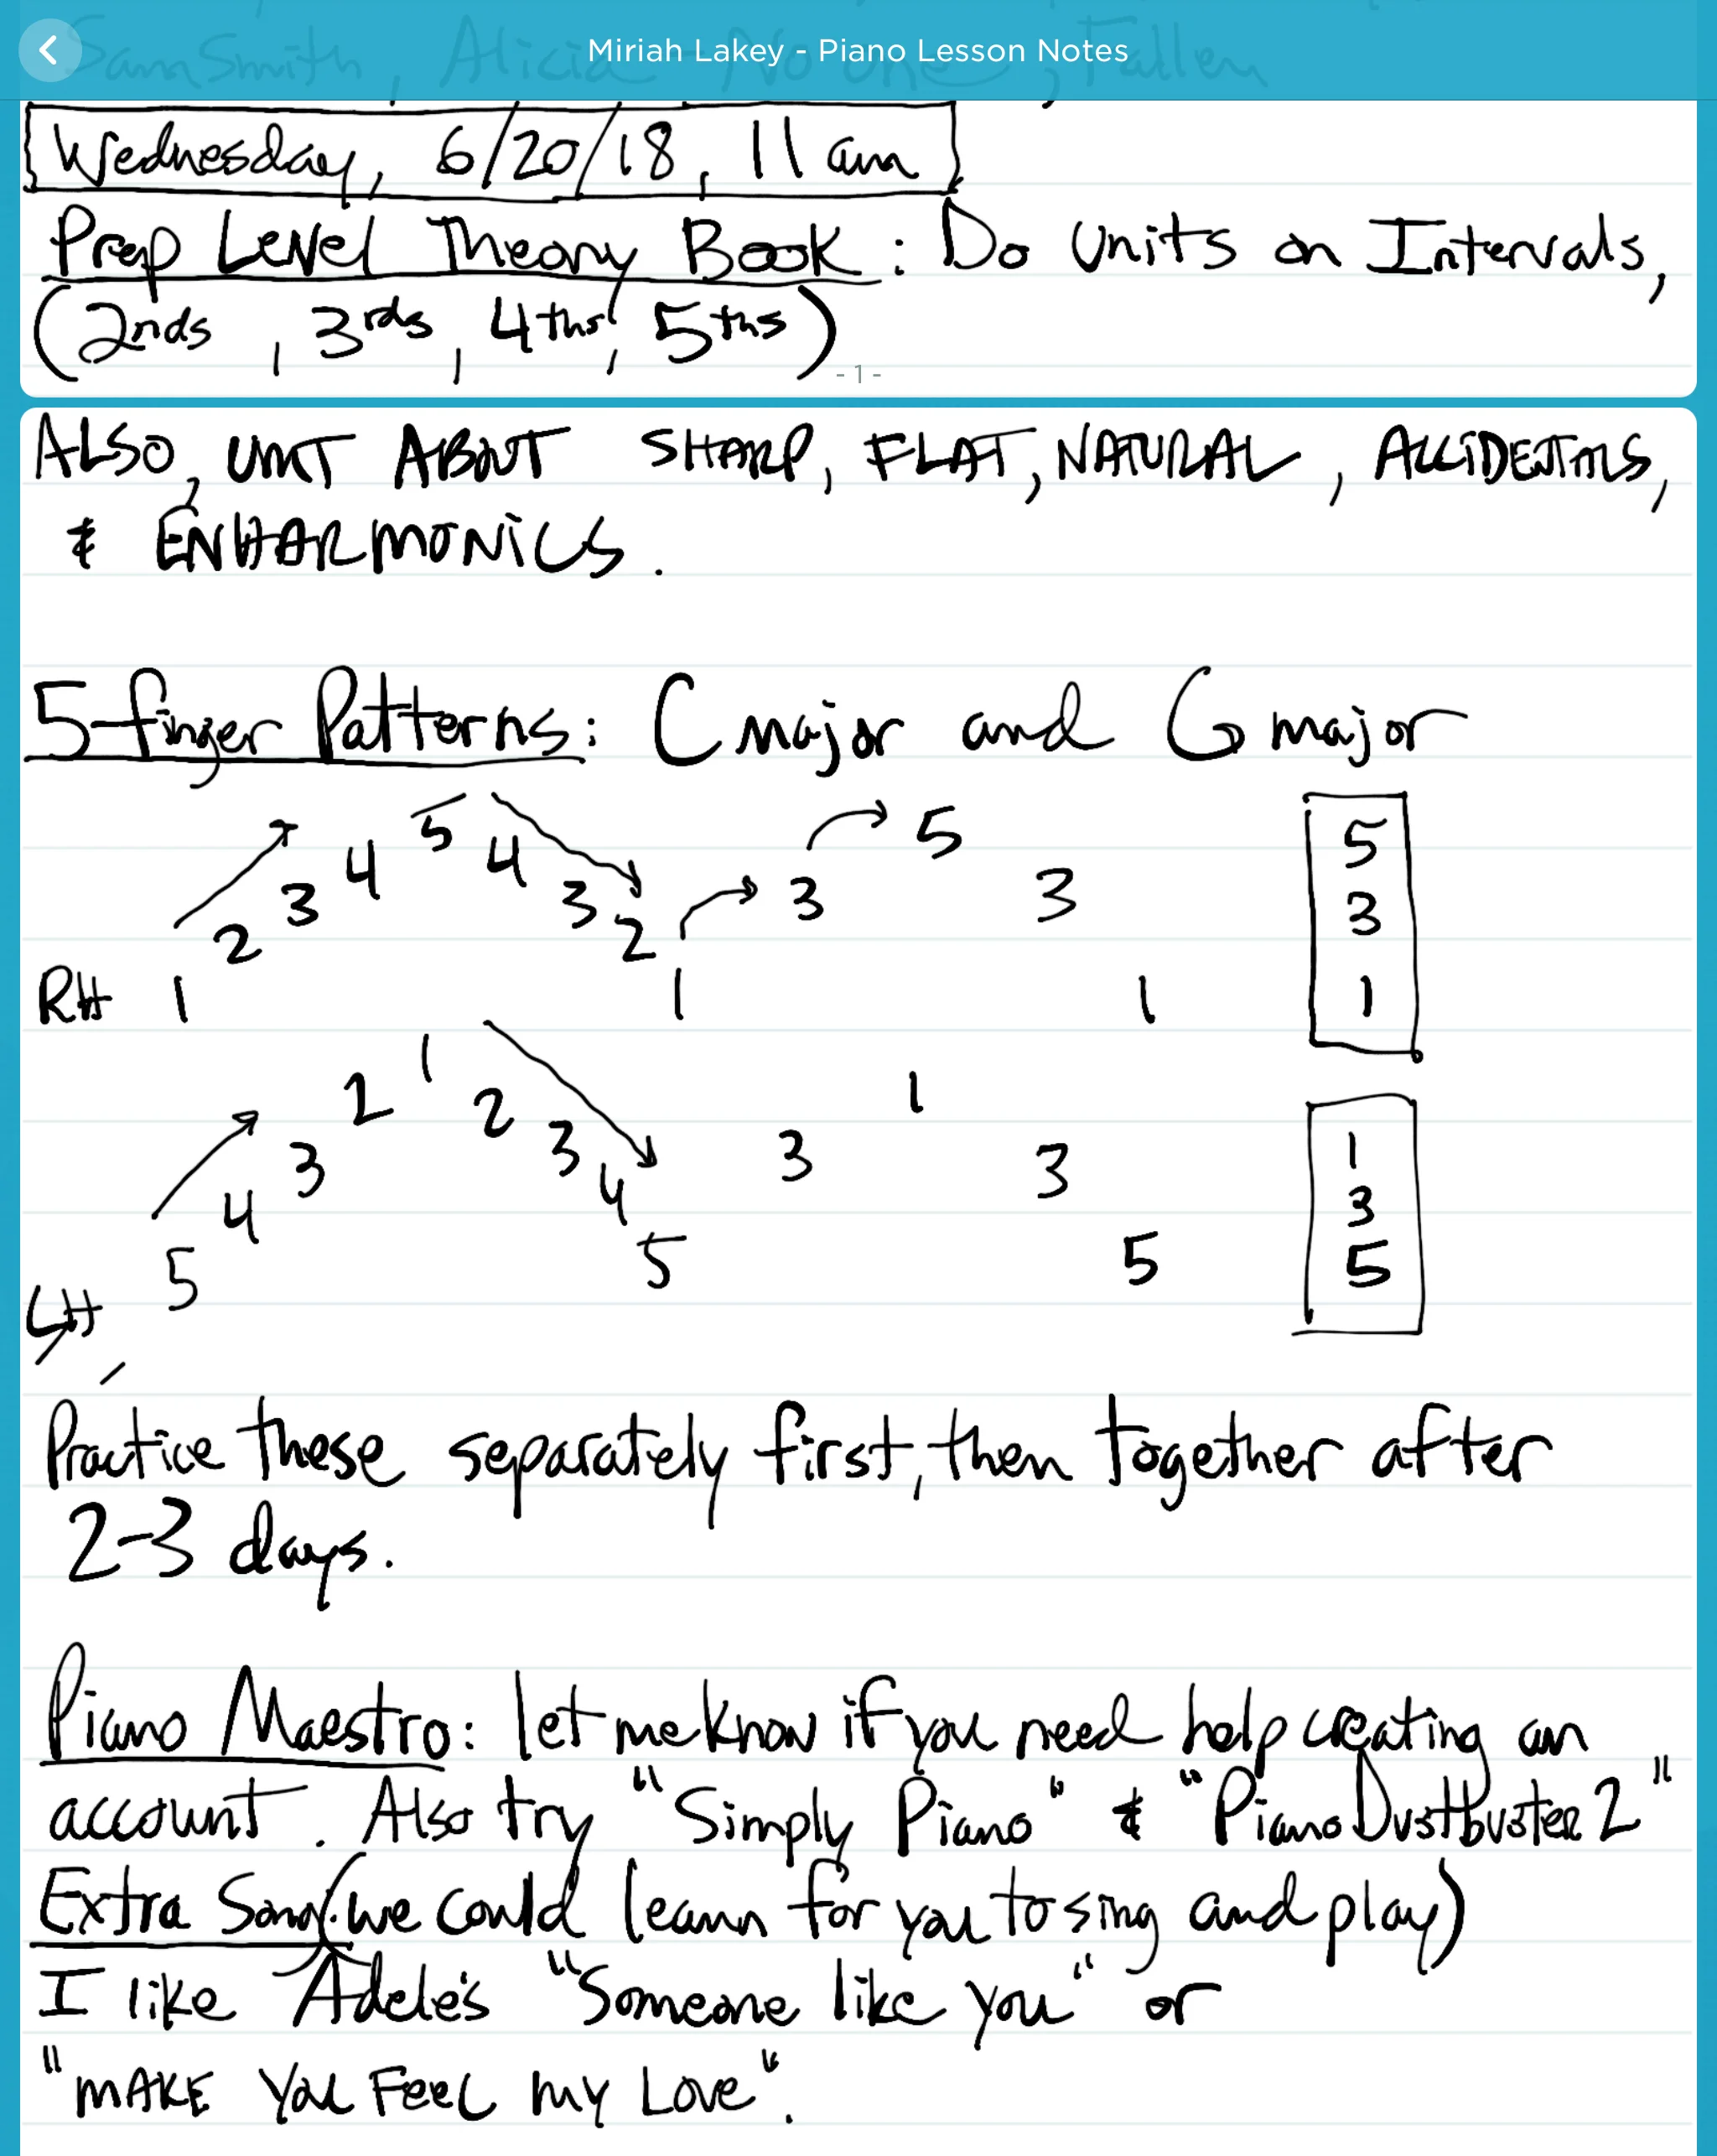 Sam Smith, Alicia - No one, Fallen
Miriah Lakey - Piano Lesson Notes
Wednesday, 6/20/18, 11 am
Prep Level Theory Book: Do Units on Intervals,
(2nds, 3rds, 4ths, 5ths)
- 1 -
ALSO, UNIT ABOUT SHARP, FLAT, NATURAL, ACCIDENTALS,
& ENHARMONICS.
5-finger Patterns: C major and G major
RH 1 2 3 4 5 4 3 2 1 3 5 3 1
5
3
1
LH 5 4 3 2 1 2 3 4 5 3 1 3 5
1
3
5
Practice these separately first, then together after
2-3 days.
Piano Maestro: let me know if you need help creating an
account. Also try "Simply Piano" & "Piano Dustbuster 2"
Extra Song: (we could learn for you to sing and play)
I like Adele's "Someone like you" or
"MAKE YOU FEEL MY LOVE".